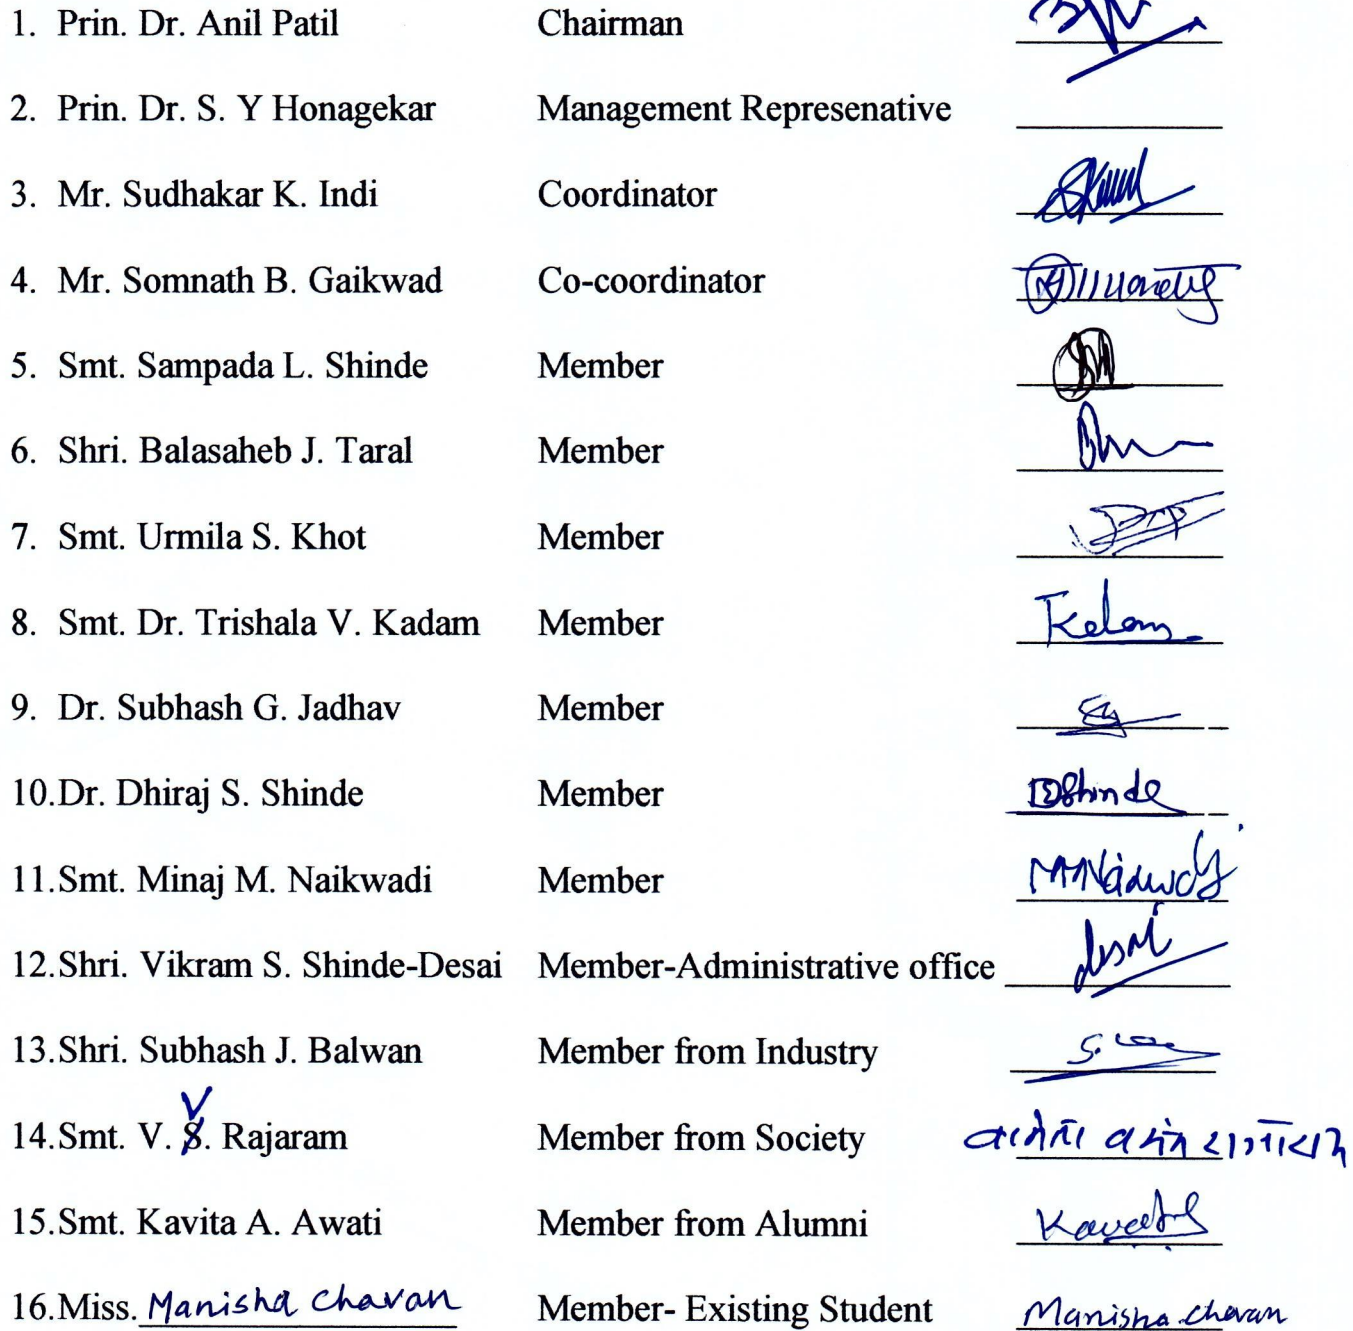 1. Prin. Dr. Anil Patil Chairman
2. Prin. Dr. S. Y Honagekar Management Represenative
3. Mr. Sudhakar K. Indi Coordinator
4. Mr. Somnath B. Gaikwad Co-coordinator
5. Smt. Sampada L. Shinde Member
6. Shri. Balasaheb J. Taral Member
7. Smt. Urmila S. Khot Member
8. Smt. Dr. Trishala V. Kadam Member
9. Dr. Subhash G. Jadhav Member
10.Dr. Dhiraj S. Shinde Member DShinde
11.Smt. Minaj M. Naikwadi Member
12.Shri. Vikram S. Shinde-Desai Member-Administrative office
13.Shri. Subhash J. Balwan Member from Industry
14.Smt. V. V. Rajaram Member from Society
15.Smt. Kavita A. Awati Member from Alumni
16.Miss. Manisha Chavan Member- Existing Student Manisha chavan